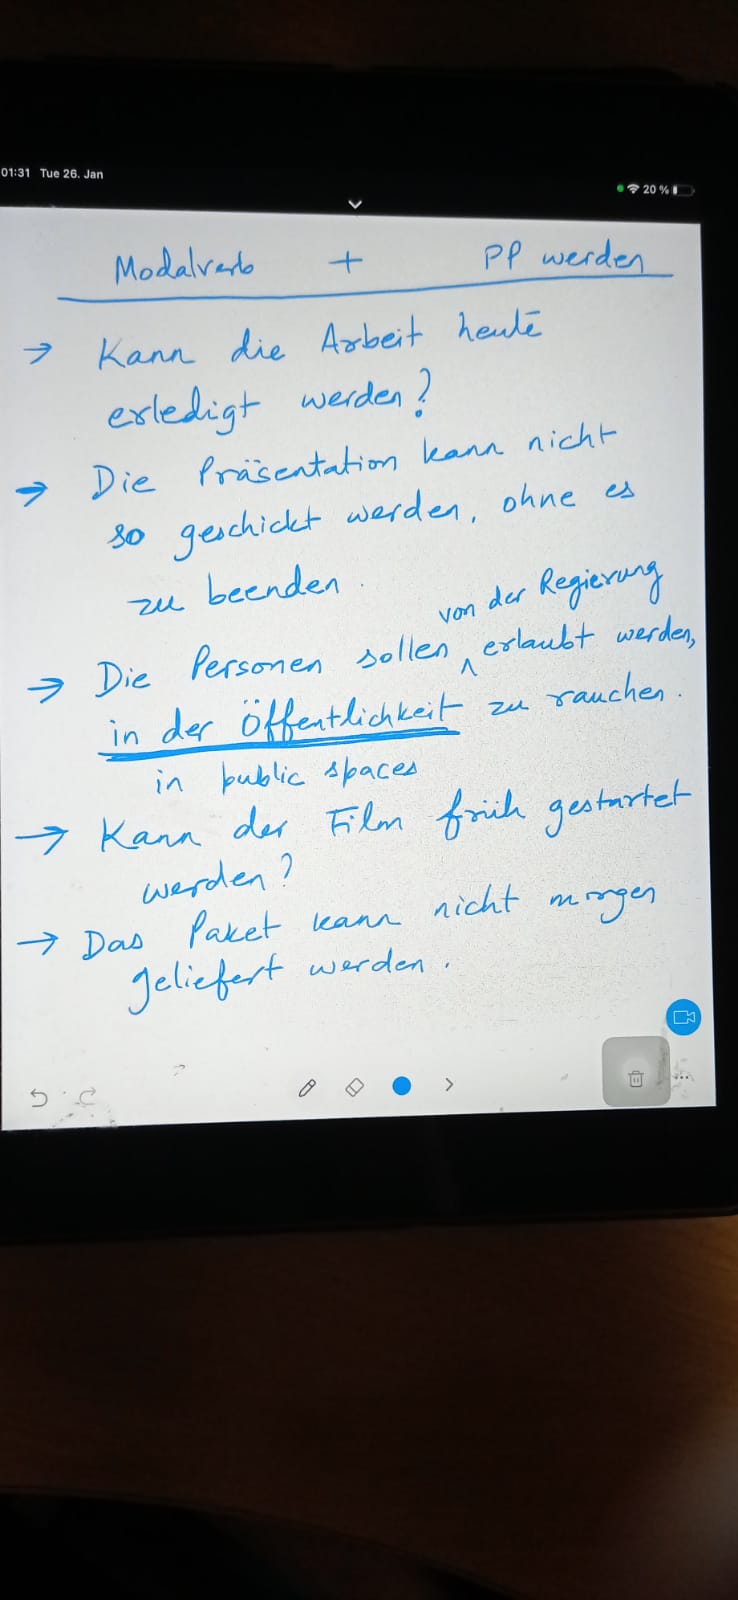 01:31 Tue 26. Jan
20 %
Modalverb + PP werden
→ Kann die Arbeit heute
erledigt werden?
→ Die Präsentation kann nicht
so geschickt werden, ohne es
zu beenden.
von der Regierung
→ Die Personen sollen ^ erlaubt werden,
in der Öffentlichkeit zu rauchen.
in public spaces
→ Kann der Film früh gestartet
werden?
→ Das Paket kann nicht morgen
geliefert werden.